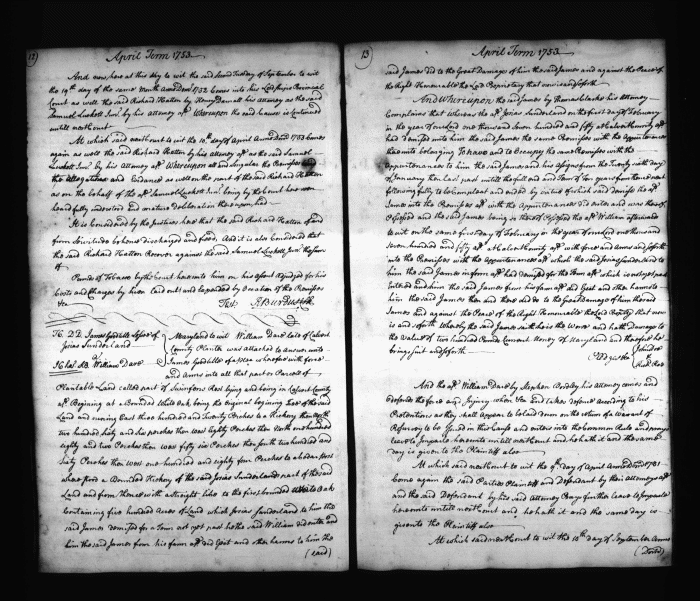 12)
April Term 1753
And now here at this day to wit the said second Tuesday of September to wit
the 19th day of the same Month Anno Domi 1752 comes into his Lordships Provincial
Court as well the said Richard Hatton by Henry Darnall his attorney as the said
Samuel Luckett Junr. by his attorney aft Whereupon the said cause is Continued
untill next Court
At which said next Court to wit the 10th day of April Anno Domi 1753 comes
again as well the said Richard Hatton by his Attorney aft as the said Samuel
Luckett Junr by his Attorney aft Whereupon all and Singular the Premisses
the Allegations and Evidence as well on the part of the said Richard Hatton
as on the behalf of the aft Samuel Luckett Junr. being by the Court here seen
heard fully understood and mature deliberation thereupon had
It is Considered by the Justices here that the said Richard Hatton of and
from Servitude by hence discharged and freed, And it is also Considered that
the said Richard Hatton Recover against the said Samuel Luckett Junr the sum
of
Pounds of Tobacco by the Court here unto him on his assent Adjudged for his
Costs and Charges by him laid out and Expended by Occasion of the Premisses
&ca
Test R Burdus Clk
James Goodchild Lessee of
Josias Sunderland
vs
William Dare
Maryland to wit William Dare late of Calvert
County Planter was attached to answer unto
James Goodchild of a Plea wherefore with force
and Arms into all that part or Parcel of
Plantable Land called part of Swinfens Rest lying and being in Calvert County
aft Beginning at a Bounded White Oak being the original begining Tree of the said
Land and runing East three hundred and Twenty Perches to a Hickory then North
two hundred sixty and six perches then West Eighty Perches then North one hundred
eighty and two Perches then West fifty six Perches then South two hundred and
sixty Perches then West one hundred and eighty four Perches to a
Bounded Hickory of the said Josias Sunderlands part of the said
Land and from thence with a straight line to the first bounded White Oak
Containing five hundred Acres of Land which Josias Sunderland to him the
said James demised for a Term not yet past he the said William did enter and
him the said James from his farm aft did Eject and other harms to him the
(said)
13
April Term 1753
said James did to the Great Damages of him the said James and against the Peace of
the Right Honourable the Lord Proprietary that now is and so forth
And Whereupon the said James by his Attorney
Complains that whereas the aft Josias Sunderland on the first day of February
in the year of our Lord one thousand seven hundred and fifty at Calvert County aft
had demised unto him the said James the same Premisses with the Appurtenances
thereunto belonging To have and to Occupy the same Premisses with the
appurtenances to him the said James and his assigns from the Twenty sixth day
of January then last past untill the full end and Term of Ten years from thence next
following fully to be Compleat and ended by virtue of which said demise the aft
James into the Premisses aft with the Appurtenances did enter and was thereof
Possessed and the said James being so thereof Possessed the aft William afterwards
to wit on the same first day of February in the year of our Lord one thousand
seven hundred and fifty aft at Calvert County aft with force and Arms and so forth
into the Premisses with the Appurtenances aft which the said Josias Sunderland to
him the said James in form aft had demised for the Term aft which is not yet past
entered and him the said James from his farm aft did Eject and other harms to
him the said James then and there did do to the Great Damage of him the said
James and against the Peace of the Right Honourable the Lord Propty that now
is and so forth Whereby the said James saith he is the Worse and hath damage to
the value of two hundred Pounds Current Money of Maryland and therefore he
brings suit and so forth
Pledges &ca
John Doe
&
Richd. Roe
And the aft William Dare by Stephen Bordley his attorney comes and
defends the force and Injury when &ca And takes defence according to his
Pretentions as they shall appear to be laid down on the return of a Warrant of
Resurvey to be Issued in this Cause and enters into the Common Rule and prays
leave to Imparle hereunto untill next Court and he hath it and the same
day is given to the Plaintiff also
At which said next Court to wit the 9th day of April Anno Domi 1751
Come again the said Parties Plaintiff and Defendant by their Attorneys aft
and the said Defendant by his said Attorney Prays further leave to Imparle
hereunto untill next Court and he hath it and the same day is
given to the Plaintiff also
At which said next Court to wit the 10th day of September Anno
(Domi)